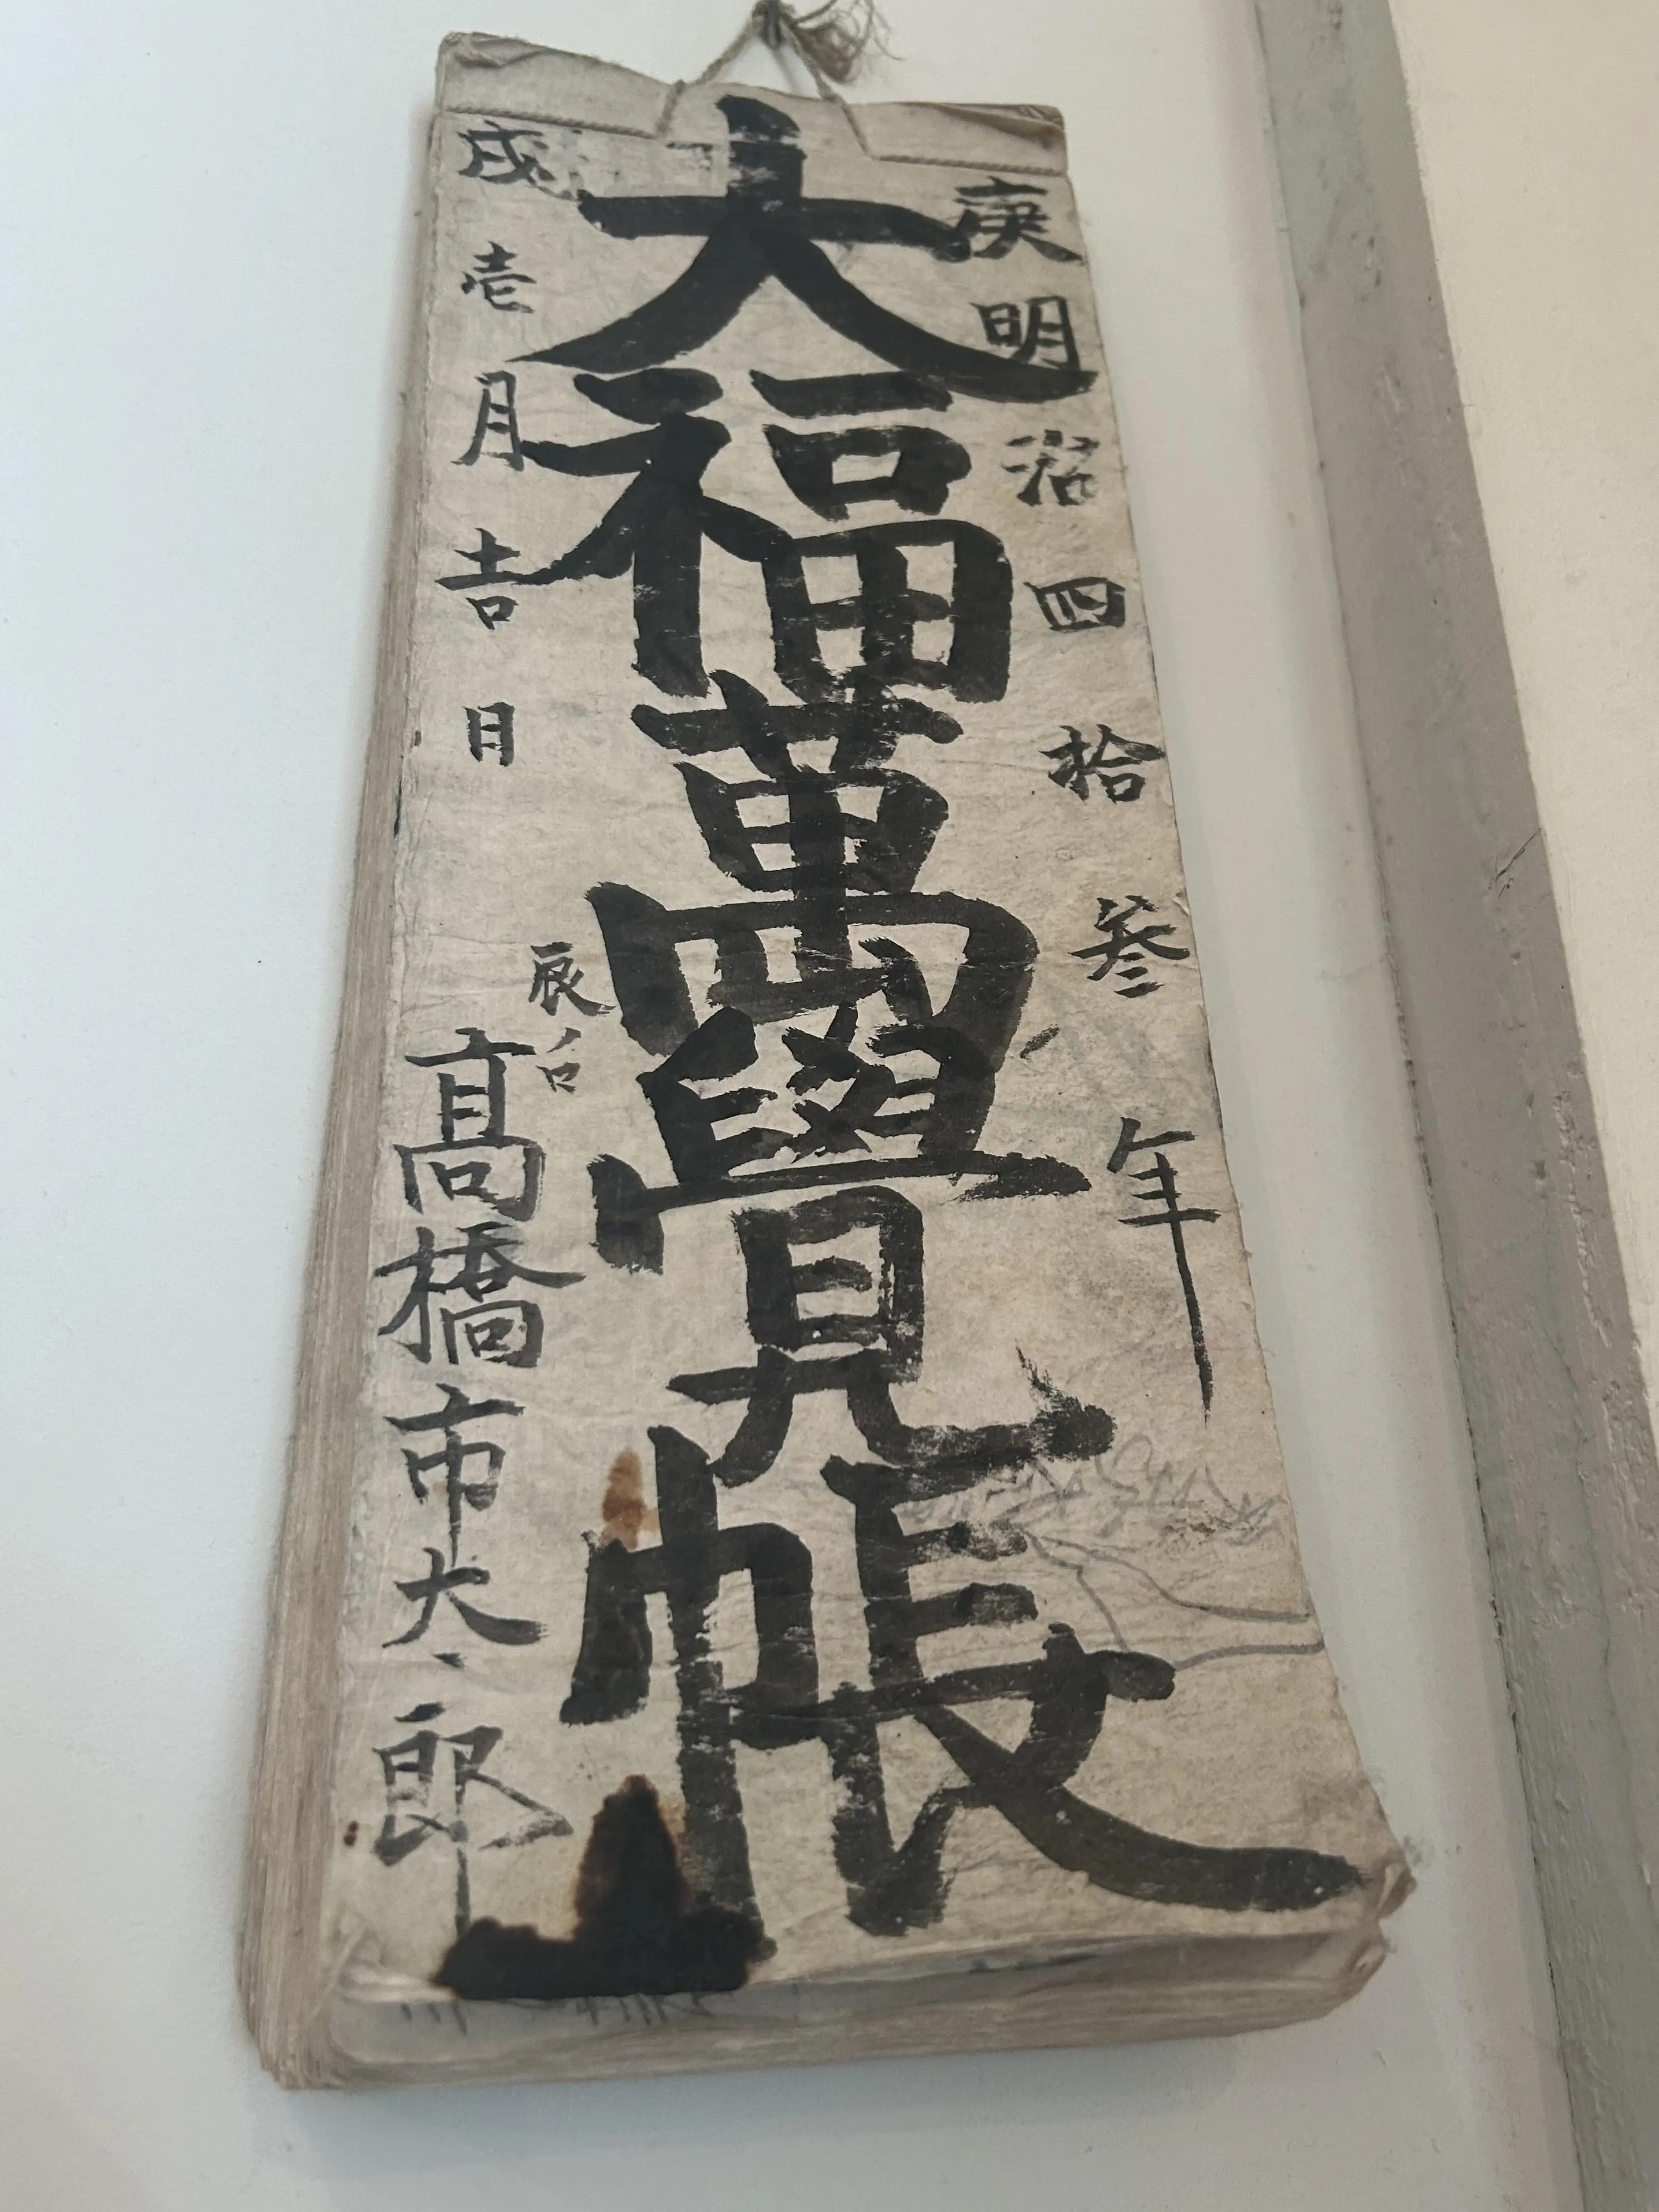 庚明治四拾参年
大福萬覺帳
戌壱月吉日
辰ノ口
髙橋市太郎